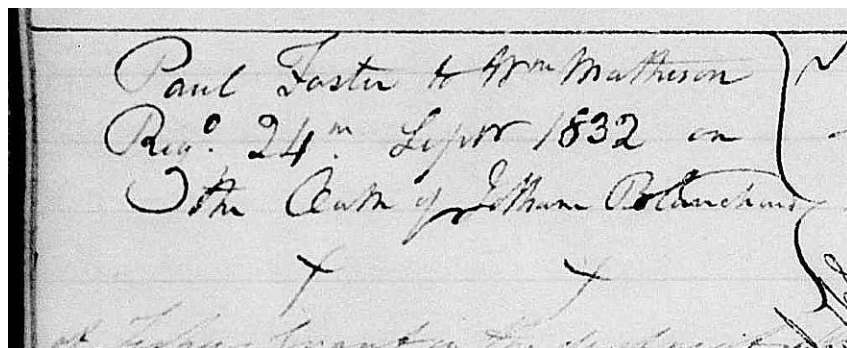 Paul Foster to Wm Matheson
Regd. 24th. Septr 1832 on
the Oath of Jotham Blanchard